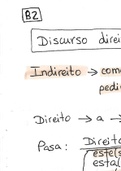 B2
Discurso direi
Indireito → com
pedi
Direito → a →
Pasa: Direito
este(s
esta(